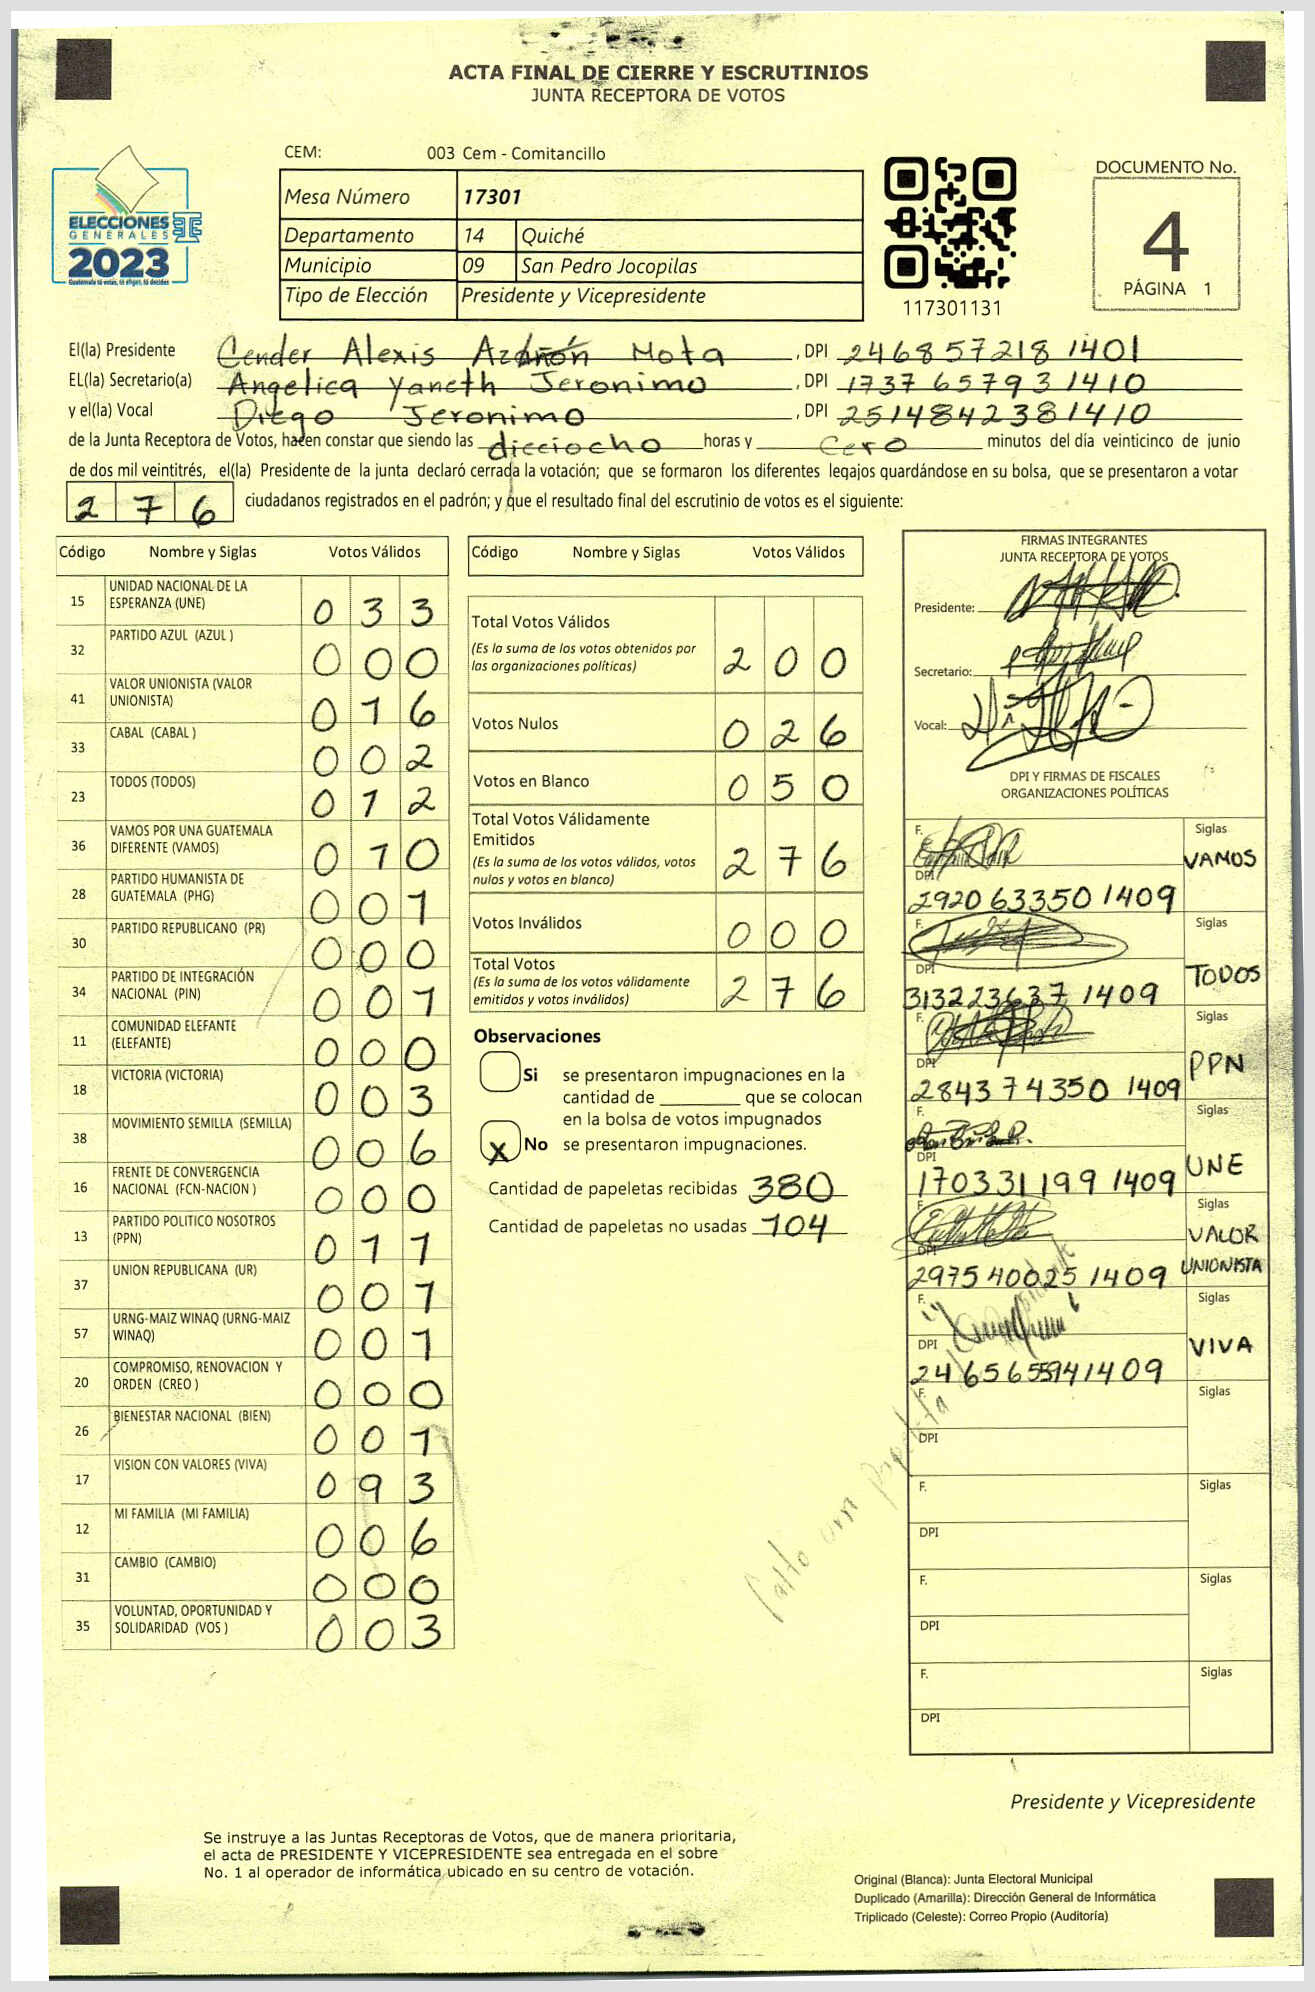 ACTA FINAL DE CIERRE Y ESCRUTINIOS
JUNTA RECEPTORA DE VOTOS
CEM: 003 Cem - Comitancillo
ELECCIONES
GENERALES
2023
Guatemala tú votas, tú eliges, tú decides
Mesa Número 17301
Departamento 14 Quiché
Municipio 09 San Pedro Jocopilas
Tipo de Elección Presidente y Vicepresidente
117301131
DOCUMENTO No.
4
PÁGINA 1
El(la) Presidente Cender Alexis Azañón Mota, DPI 2468572181401
EL(la) Secretario(a) Angelica Yaneth Jeronimo, DPI 1737657931410
y el(la) Vocal Diego Jeronimo, DPI 2514842381410
de la Junta Receptora de Votos, hacen constar que siendo las dieciocho horas y cero minutos del día veinticinco de junio
de dos mil veintitrés, el(la) Presidente de la junta declaró cerrada la votación; que se formaron los diferentes legajos quardándose en su bolsa, que se presentaron a votar
276 ciudadanos registrados en el padrón; y que el resultado final del escrutinio de votos es el siguiente:
Código Nombre y Siglas Votos Válidos
15 UNIDAD NACIONAL DE LA ESPERANZA (UNE) 033
32 PARTIDO AZUL (AZUL ) 000
41 VALOR UNIONISTA (VALOR UNIONISTA) 016
33 CABAL (CABAL ) 002
23 TODOS (TODOS) 012
36 VAMOS POR UNA GUATEMALA DIFERENTE (VAMOS) 010
28 PARTIDO HUMANISTA DE GUATEMALA (PHG) 001
30 PARTIDO REPUBLICANO (PR) 000
34 PARTIDO DE INTEGRACIÓN NACIONAL (PIN) 001
11 COMUNIDAD ELEFANTE (ELEFANTE) 000
18 VICTORIA (VICTORIA) 003
38 MOVIMIENTO SEMILLA (SEMILLA) 006
16 FRENTE DE CONVERGENCIA NACIONAL (FCN-NACION ) 000
13 PARTIDO POLITICO NOSOTROS (PPN) 011
37 UNION REPUBLICANA (UR) 001
57 URNG-MAIZ WINAQ (URNG-MAIZ WINAQ) 001
20 COMPROMISO, RENOVACION Y ORDEN (CREO ) 000
26 BIENESTAR NACIONAL (BIEN) 001
17 VISION CON VALORES (VIVA) 093
12 MI FAMILIA (MI FAMILIA) 006
31 CAMBIO (CAMBIO) 000
35 VOLUNTAD, OPORTUNIDAD Y SOLIDARIDAD (VOS ) 003
Código Nombre y Siglas Votos Válidos
Total Votos Válidos 200
(Es la suma de los votos obtenidos por
las organizaciones políticas)
Votos Nulos 026
Votos en Blanco 050
Total Votos Válidamente
Emitidos 276
(Es la suma de los votos válidos, votos
nulos y votos en blanco)
Votos Inválidos 000
Total Votos 276
(Es la suma de los votos válidamente
emitidos y votos inválidos)
Observaciones
Si se presentaron impugnaciones en la
cantidad de ________ que se colocan
en la bolsa de votos impugnados
X No se presentaron impugnaciones.
Cantidad de papeletas recibidas 380
Cantidad de papeletas no usadas 104
FIRMAS INTEGRANTES
JUNTA RECEPTORA DE VOTOS
Presidente:
Secretario:
Vocal:
DPI Y FIRMAS DE FISCALES
ORGANIZACIONES POLÍTICAS
F. Siglas
VAMOS
DPI
2920 63350 1409
F. Siglas
TODOS
DPI
313223637 1409
F. Siglas
PPN
DPI
2843 74350 1409
F. Siglas
UNE
DPI
170331199 1409
F. Siglas
VALOR
UNIONISTA
DPI
2975 40025 1409
F. Siglas
VIVA
DPI
2465655941409
F. Siglas
DPI
F. Siglas
DPI
F. Siglas
DPI
F. Siglas
DPI
Falto una papeleta
Presidente y Vicepresidente
Se instruye a las Juntas Receptoras de Votos, que de manera prioritaria,
el acta de PRESIDENTE Y VICEPRESIDENTE sea entregada en el sobre
No. 1 al operador de informática ubicado en su centro de votación.
Original (Blanca): Junta Electoral Municipal
Duplicado (Amarilla): Dirección General de Informática
Triplicado (Celeste): Correo Propio (Auditoría)